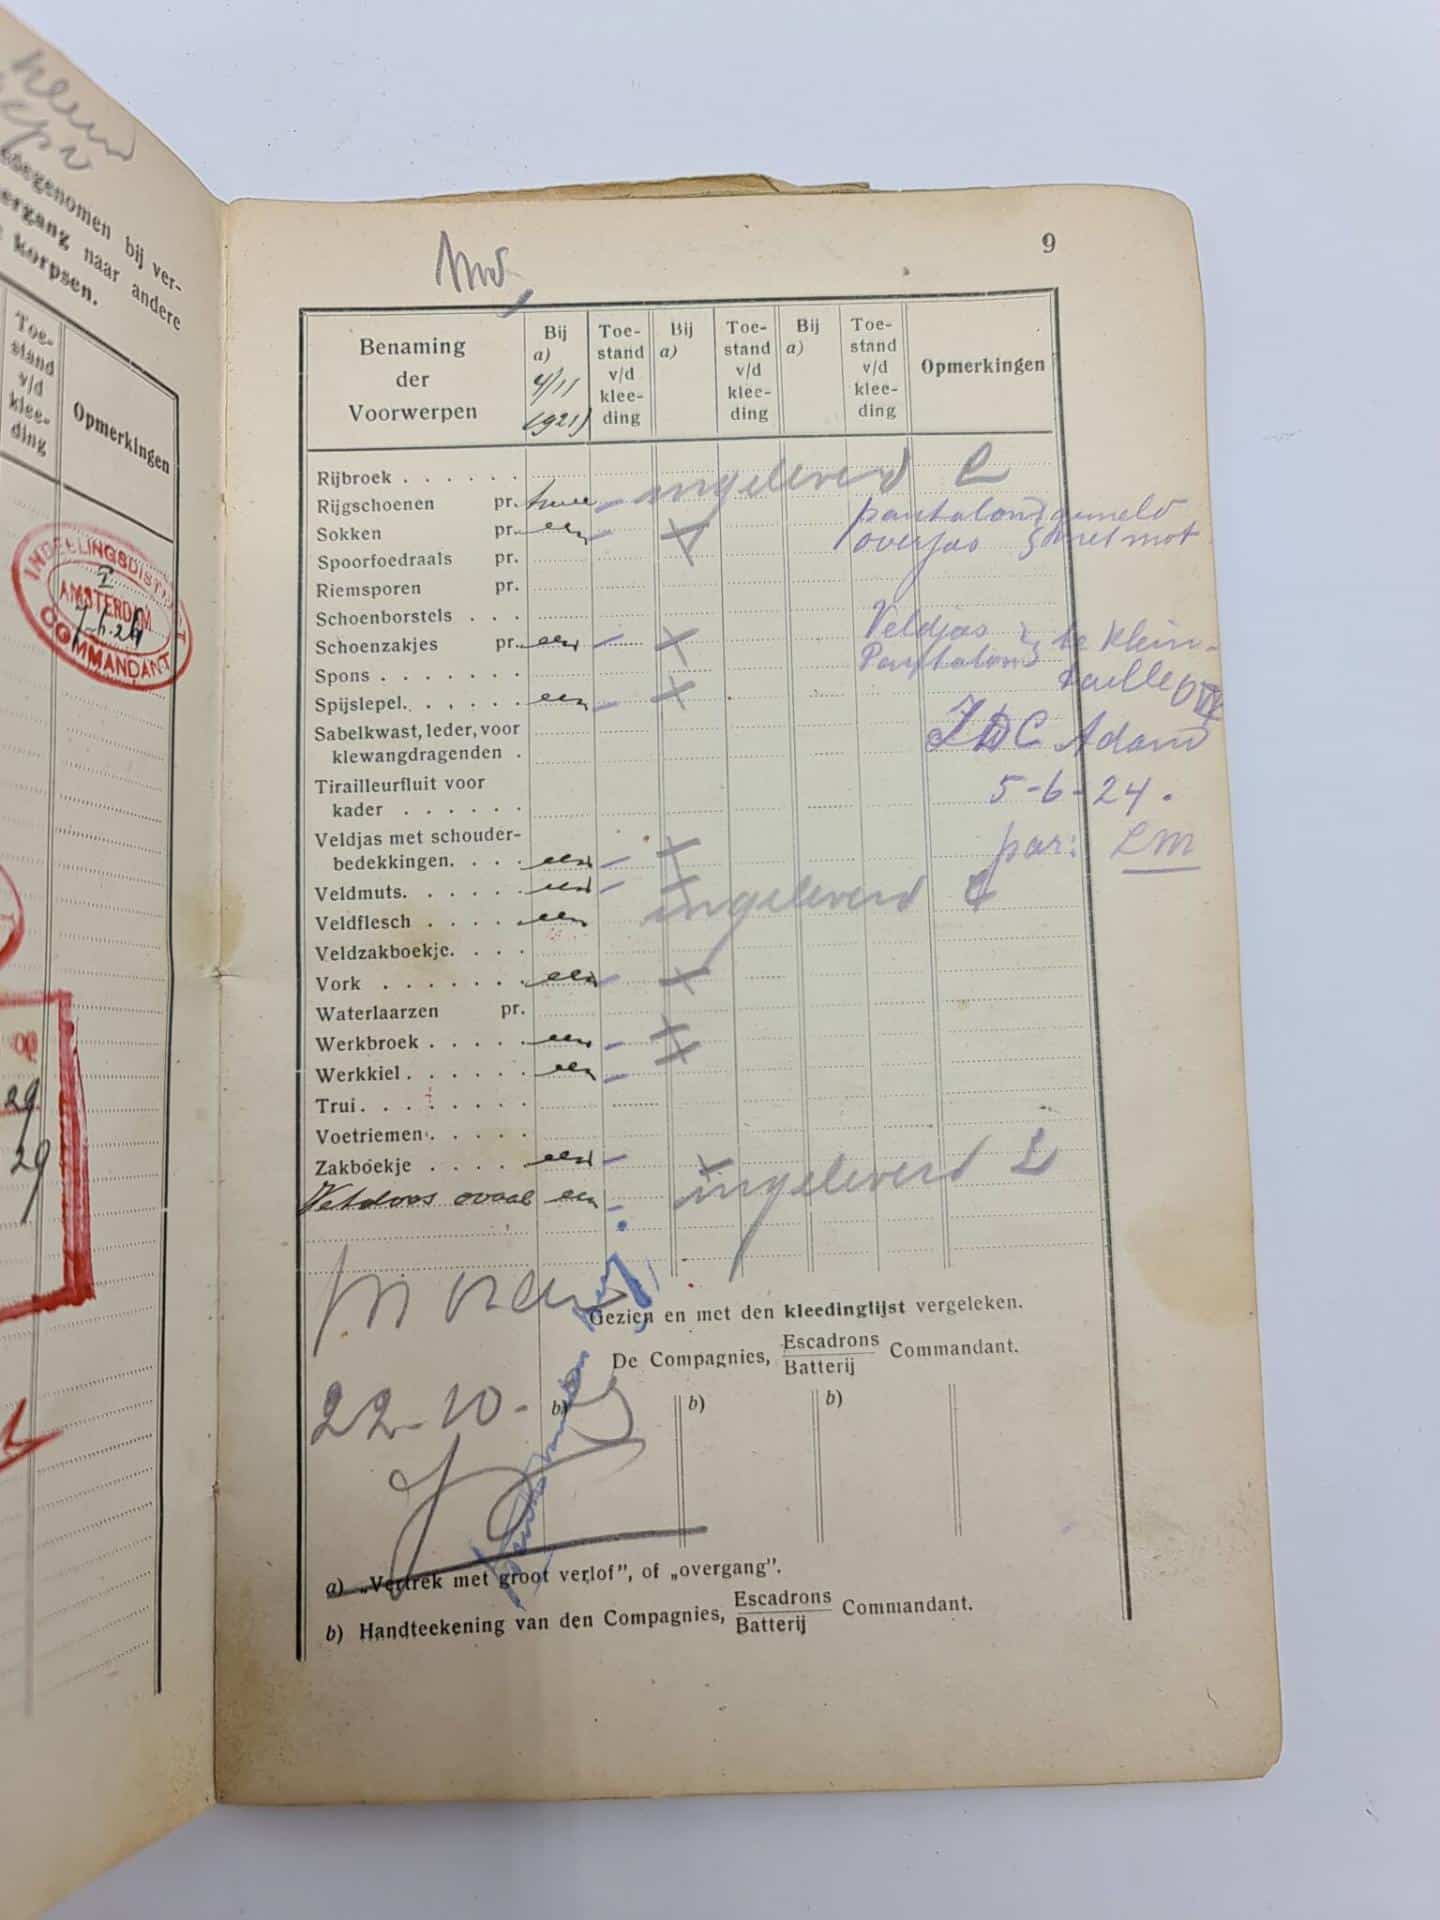 Klein
toegenomen bij ver-
overgang naar andere
korpsen.
Toe-
stand
v/d
klee-
ding
Opmerkingen
INDEELINGSDISTRICT
I
AMSTERDAM
COMMANDANT
29
29
9
Benaming
der
Voorwerpen
Bij
a)
4/11
1921
Toe-
stand
v/d
klee-
ding
Bij
a)
Toe-
stand
v/d
klee-
ding
Bij
a)
Toe-
stand
v/d
klee-
ding
Opmerkingen
Rijbroek . . . . . .
Rijgschoenen pr. twee – ingeleverd
Sokken pr. een –
pantalon
overjas
Spoorfoedraals pr.
Riemsporen pr.
Schoenborstels . . .
Schoenzakjes pr. een –
Veldjas te klein
Pantalon taille
Spons . . . . . . .
Spijslepel. . . . . . een –
Sabelkwast, leder, voor
klewangdragenden .
IDC Adam
Tirailleurfluit voor
kader . . . . . .
5-6-24.
Veldjas met schouder-
bedekkingen. . . . een –
par: LM
Veldmuts. . . . . . een – ingeleverd
Veldflesch . . . . . een
Veldzakboekje. . . .
Vork . . . . . . . een –
Waterlaarzen pr.
Werkbroek . . . . . een –
Werkkiel. . . . . . een –
Trui. . . . . . . .
Voetriemen . . . . .
Zakboekje . . . . een –
Vetdoos ovaal een – ingeleverd
Gezien en met den kleedinglijst vergeleken.
De Compagnies, Escadrons
Batterij Commandant.
22-10-
b) b) b)
a) „Vertrek met groot verlof”, of „overgang”.
b) Handteekening van den Compagnies, Escadrons
Batterij Commandant.